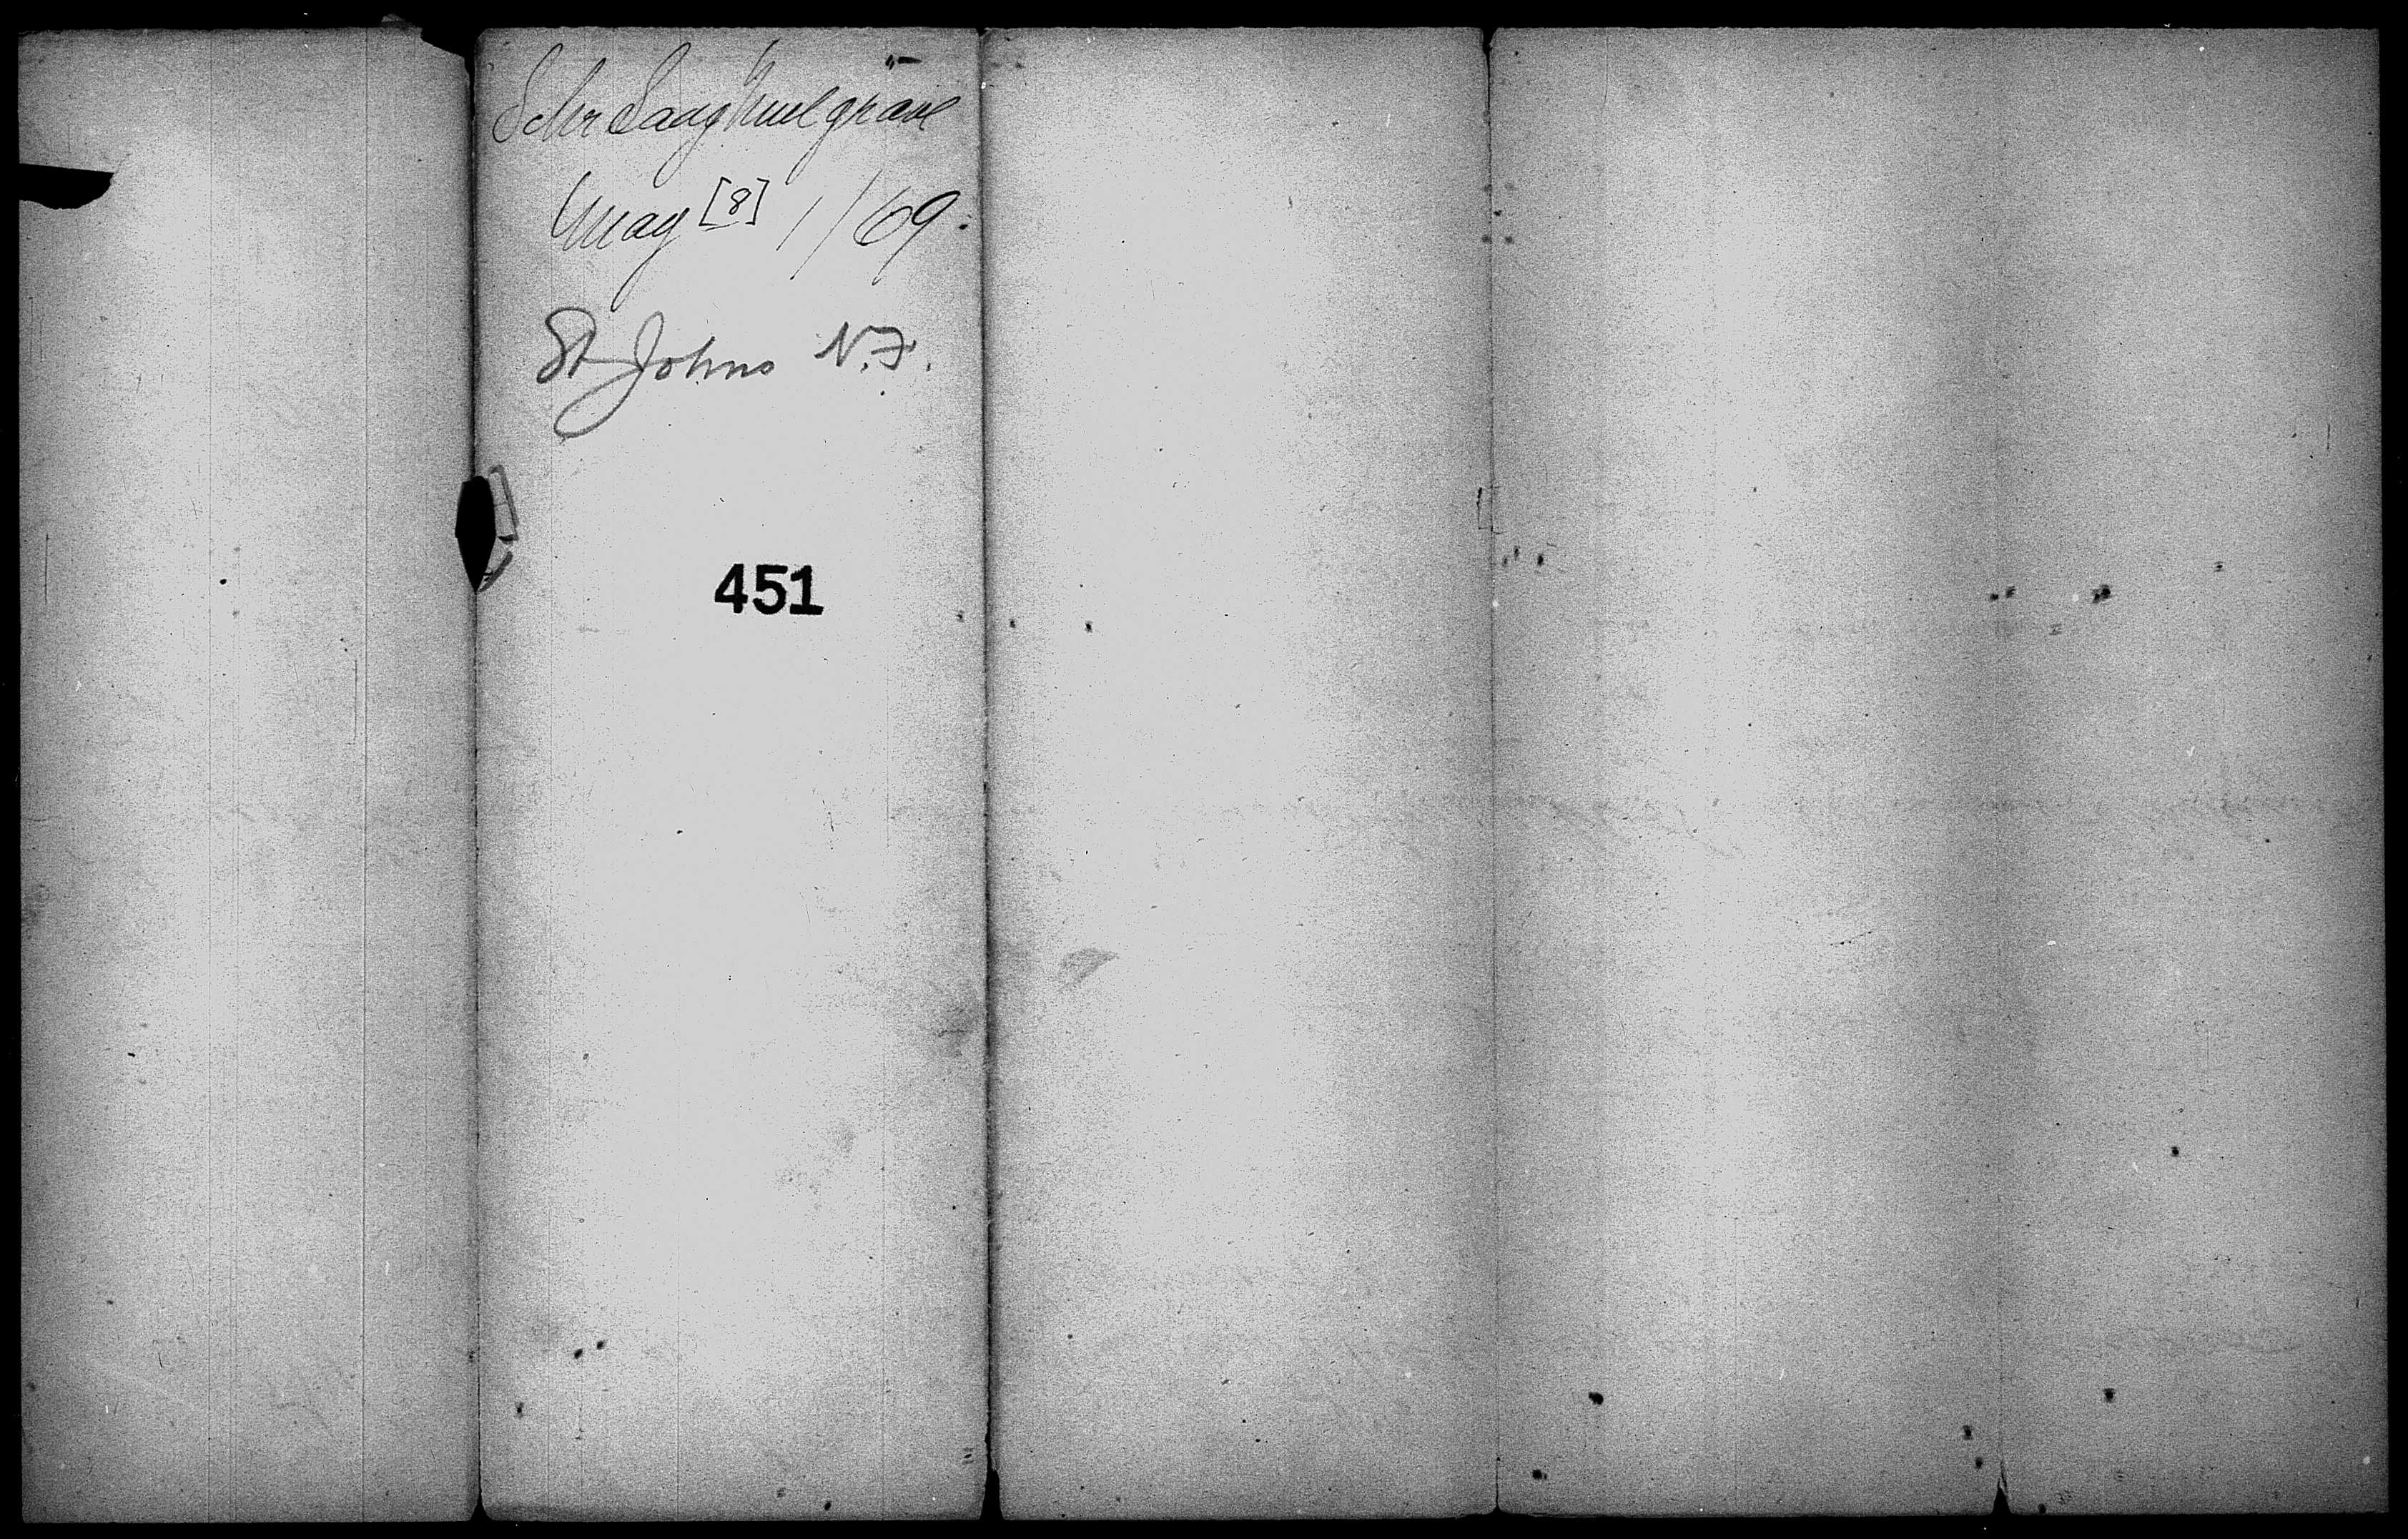 Schr Lady Mulgrave
May [8] 1/69.
St Johns N.F.
451